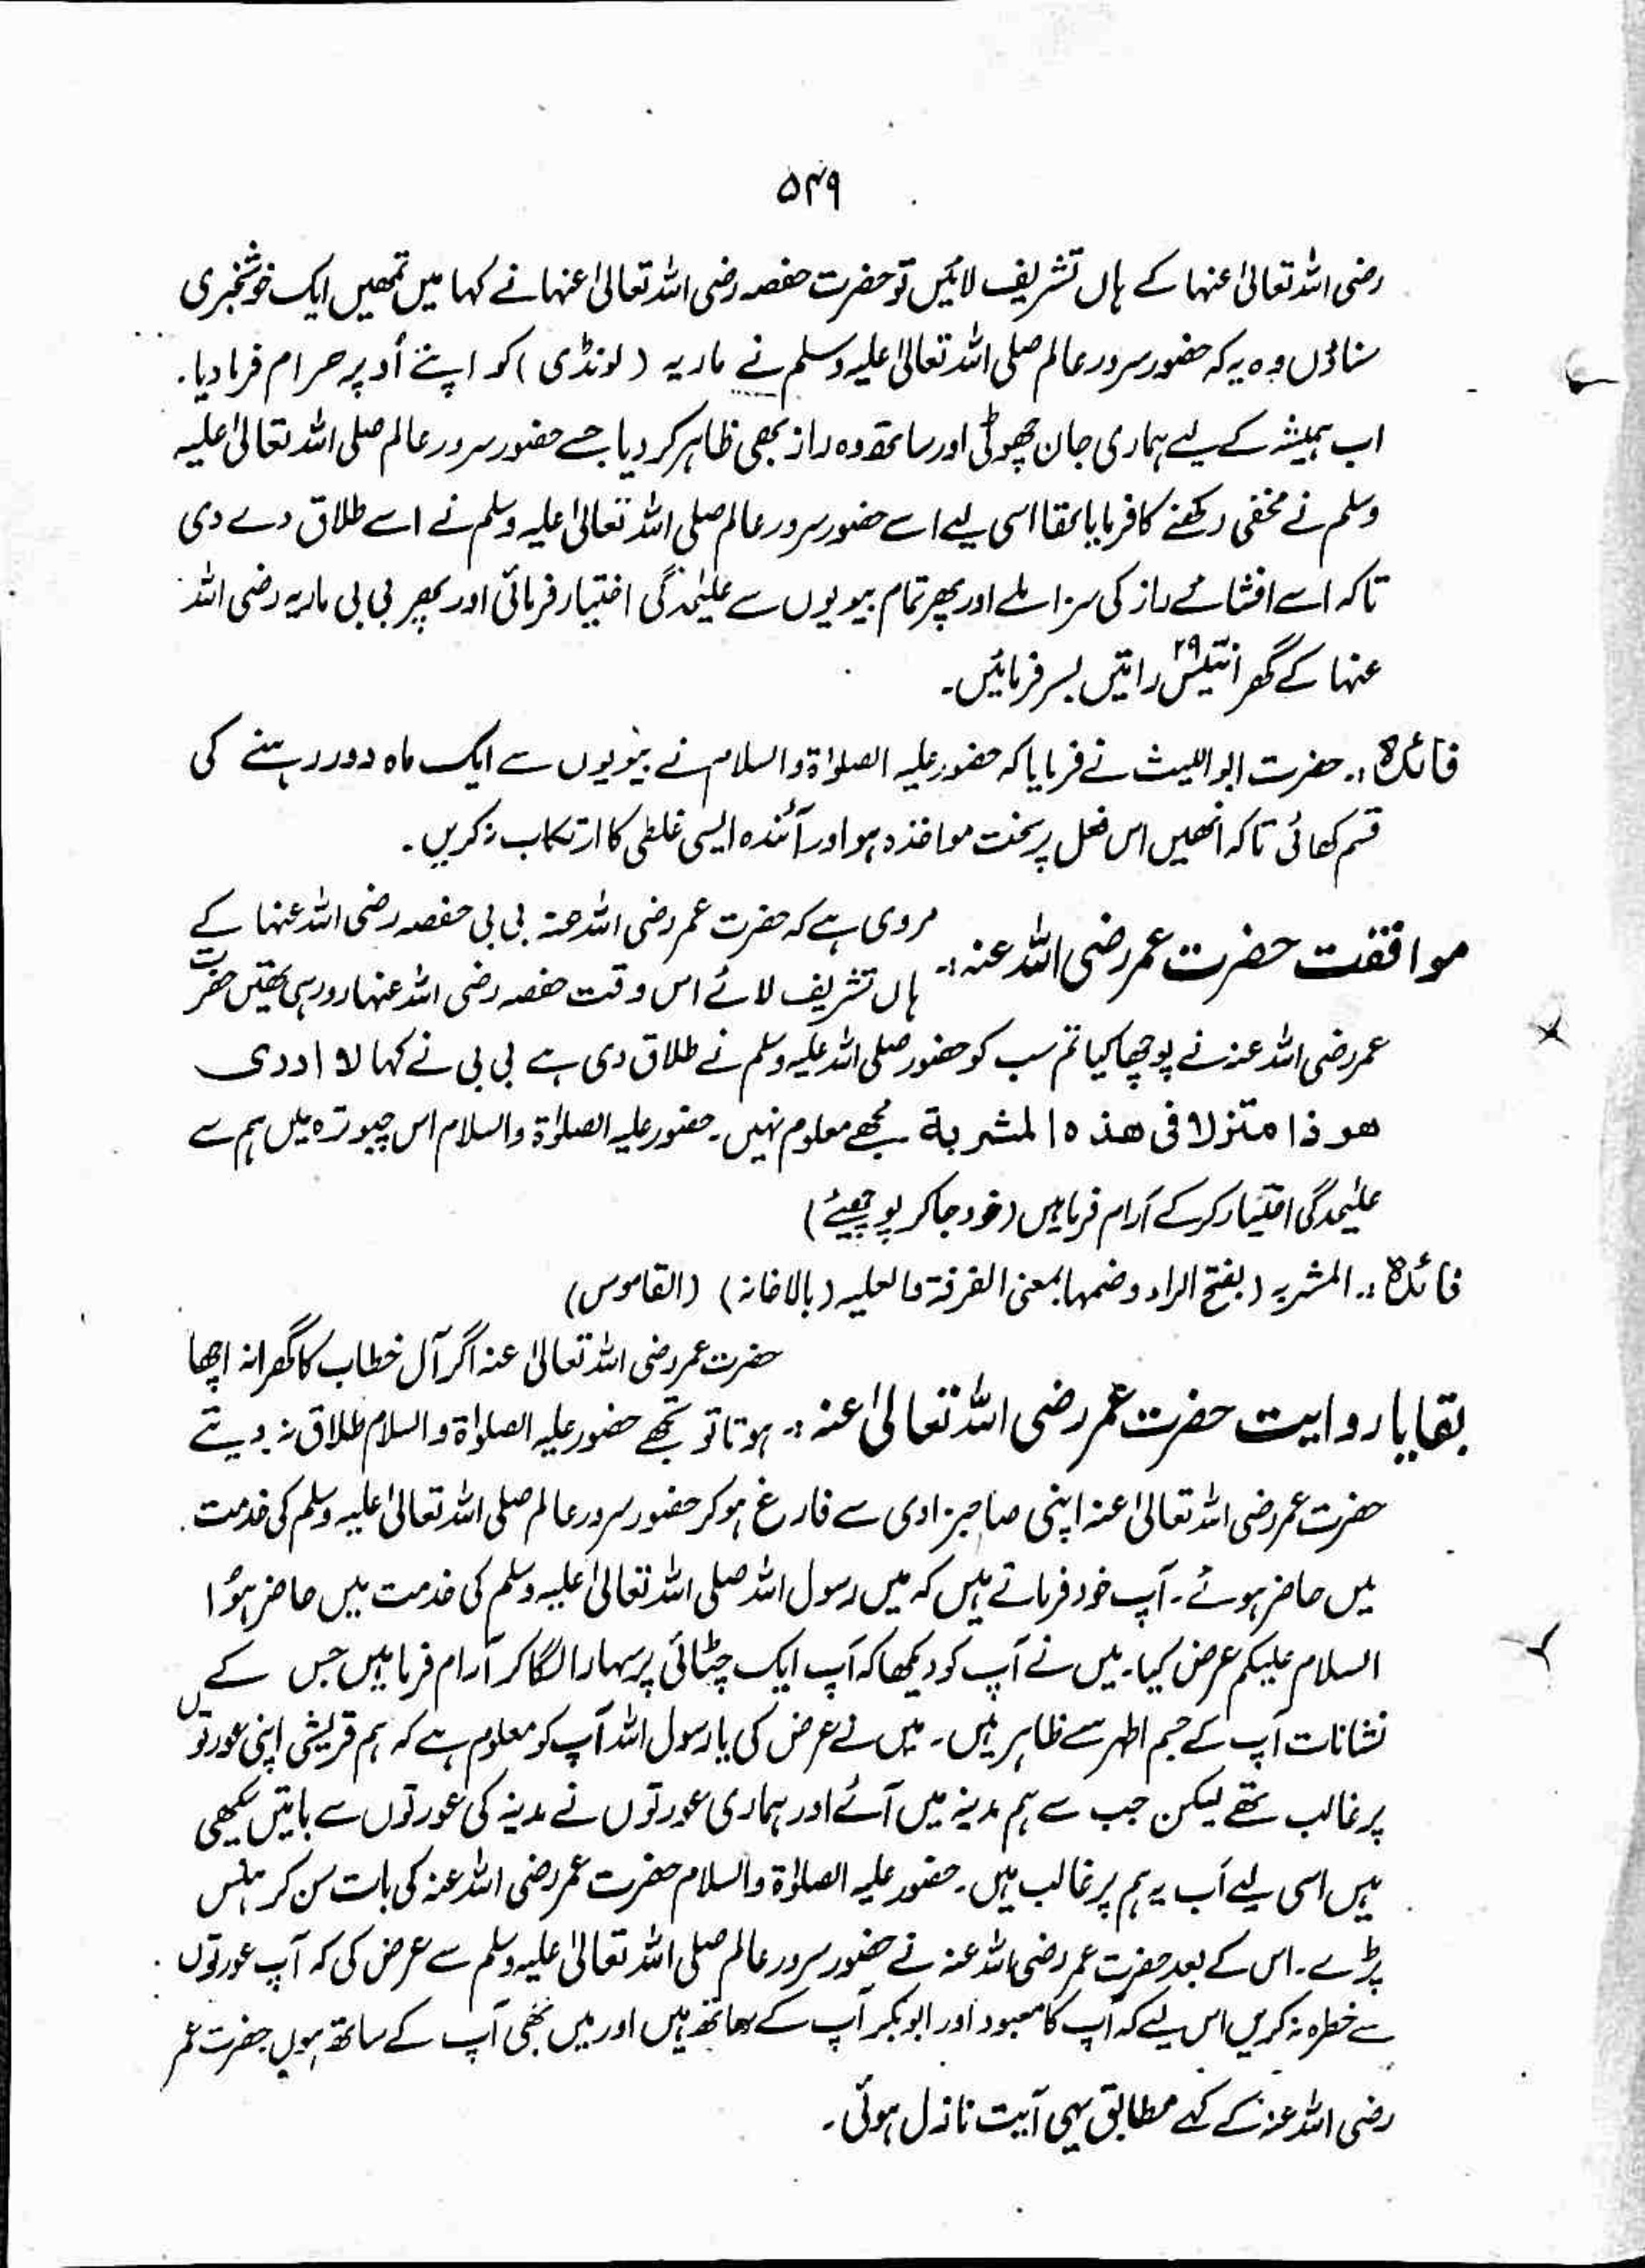 ۵۴۹
رضی اللہ تعالیٰ عنہا کے ہاں تشریف لائیں تو حضرت حفصہ رضی اللہ تعالیٰ عنہا نے کہا میں تمھیں ایک خوشخبری
سناؤں وہ یہ کہ حضور سرور عالم صلی اللہ تعالیٰ علیہ وسلم نے ماریہ (لونڈی) کو اپنے اُوپر حرام فرما دیا۔
اب ہمیشہ کے لیے ہماری جان چھوٹی اور ساتھ وہ راز بھی ظاہر کر دیا جسے حضور سرور عالم صلی اللہ تعالیٰ علیہ
وسلم نے مخفی رکھنے کا فرمایا تھا اسی لیے اسے حضور سرور عالم صلی اللہ تعالیٰ علیہ وسلم نے اسے طلاق دے دی
تاکہ اسے افشائے راز کی سزا ملے اور پھر تمام بیویوں سے علیٰحدگی اختیار فرمائی اور پھر بی بی ماریہ رضی اللہ
عنہا کے گھر انتیس ۲۹ راتیں بسر فرمائیں۔
فائدہ :۔ حضرت ابو اللیث نے فرمایا کہ حضور علیہ الصلوٰۃ والسلام نے بیویوں سے ایک ماہ دور رہنے کی
قسم کھائی تاکہ انھیں اس فعل پر سخت مواخذہ ہو اور آئندہ ایسی غلطی کا ارتکاب نہ کریں۔
موافقت حضرت عمر رضی اللہ عنہ :۔ مروی ہے کہ حضرت عمر رضی اللہ عنہ بی بی حفصہ رضی اللہ عنہا کے
ہاں تشریف لائے اس وقت حفصہ رضی اللہ عنہا رو رہی تھیں حضرت
عمر رضی اللہ عنہ نے پوچھا کیا تم سب کو حضور صلی اللہ علیہ وسلم نے طلاق دی ہے بی بی نے کہا لا ادری
ھو ذا متنزلا فی ھذہ المشربة مجھے معلوم نہیں۔ حضور علیہ الصلوٰۃ والسلام اس چبوترہ میں ہم سے
علیٰحدگی اختیار کر کے آرام فرما ہیں (خود جا کر پوچھیئے)
فائدہ :۔ المشربہ (بفتح الراء و ضمہا بمعنی الغرفۃ والعلیہ (بالاخانہ) (القاموس)
بقایا روایت حضرت عمر رضی اللہ تعالیٰ عنہ :۔ حضرت عمر رضی اللہ تعالیٰ عنہ اگر آل خطاب کا گھرانہ اچھا
ہوتا تو تجھے حضور علیہ الصلوٰۃ والسلام طلاق نہ دیتے
حضرت عمر رضی اللہ تعالیٰ عنہ اپنی صاحبزادی سے فارغ ہو کر حضور سرور عالم صلی اللہ تعالیٰ علیہ وسلم کی خدمت
میں حاضر ہوئے۔ آپ خود فرماتے ہیں کہ میں رسول اللہ صلی اللہ تعالیٰ علیہ وسلم کی خدمت میں حاضر ہوُا
السلام علیکم عرض کیا۔ میں نے آپ کو دیکھا کہ آپ ایک چٹائی پر سہارا لگا کر آرام فرما ہیں جس کے
نشانات آپ کے جسم اطہر سے ظاہر ہیں۔ میں نے عرض کی یا رسول اللہ آپ کو معلوم ہے کہ ہم قریشی اپنی عورتوں
پر غالب تھے لیکن جب سے ہم مدینہ میں آئے اور ہماری عورتوں نے مدینہ کی عورتوں سے باتیں سیکھی
ہیں اسی لیے اَب یہ ہم پر غالب ہیں۔ حضور علیہ الصلوٰۃ والسلام حضرت عمر رضی اللہ عنہ کی بات سن کر ہنس
پڑے۔ اس کے بعد حضرت عمر رضی اللہ عنہ نے حضور سرور عالم صلی اللہ تعالیٰ علیہ وسلم سے عرض کی کہ آپ عورتوں
سے خطرہ نہ کریں اس لیے کہ آپ کا معبود اور ابوبکر آپ کے ساتھ ہیں اور میں بھی آپ کے ساتھ ہوں حضرت عمر
رضی اللہ عنہ کے کہے مطابق یہی آیت نازل ہوئی۔